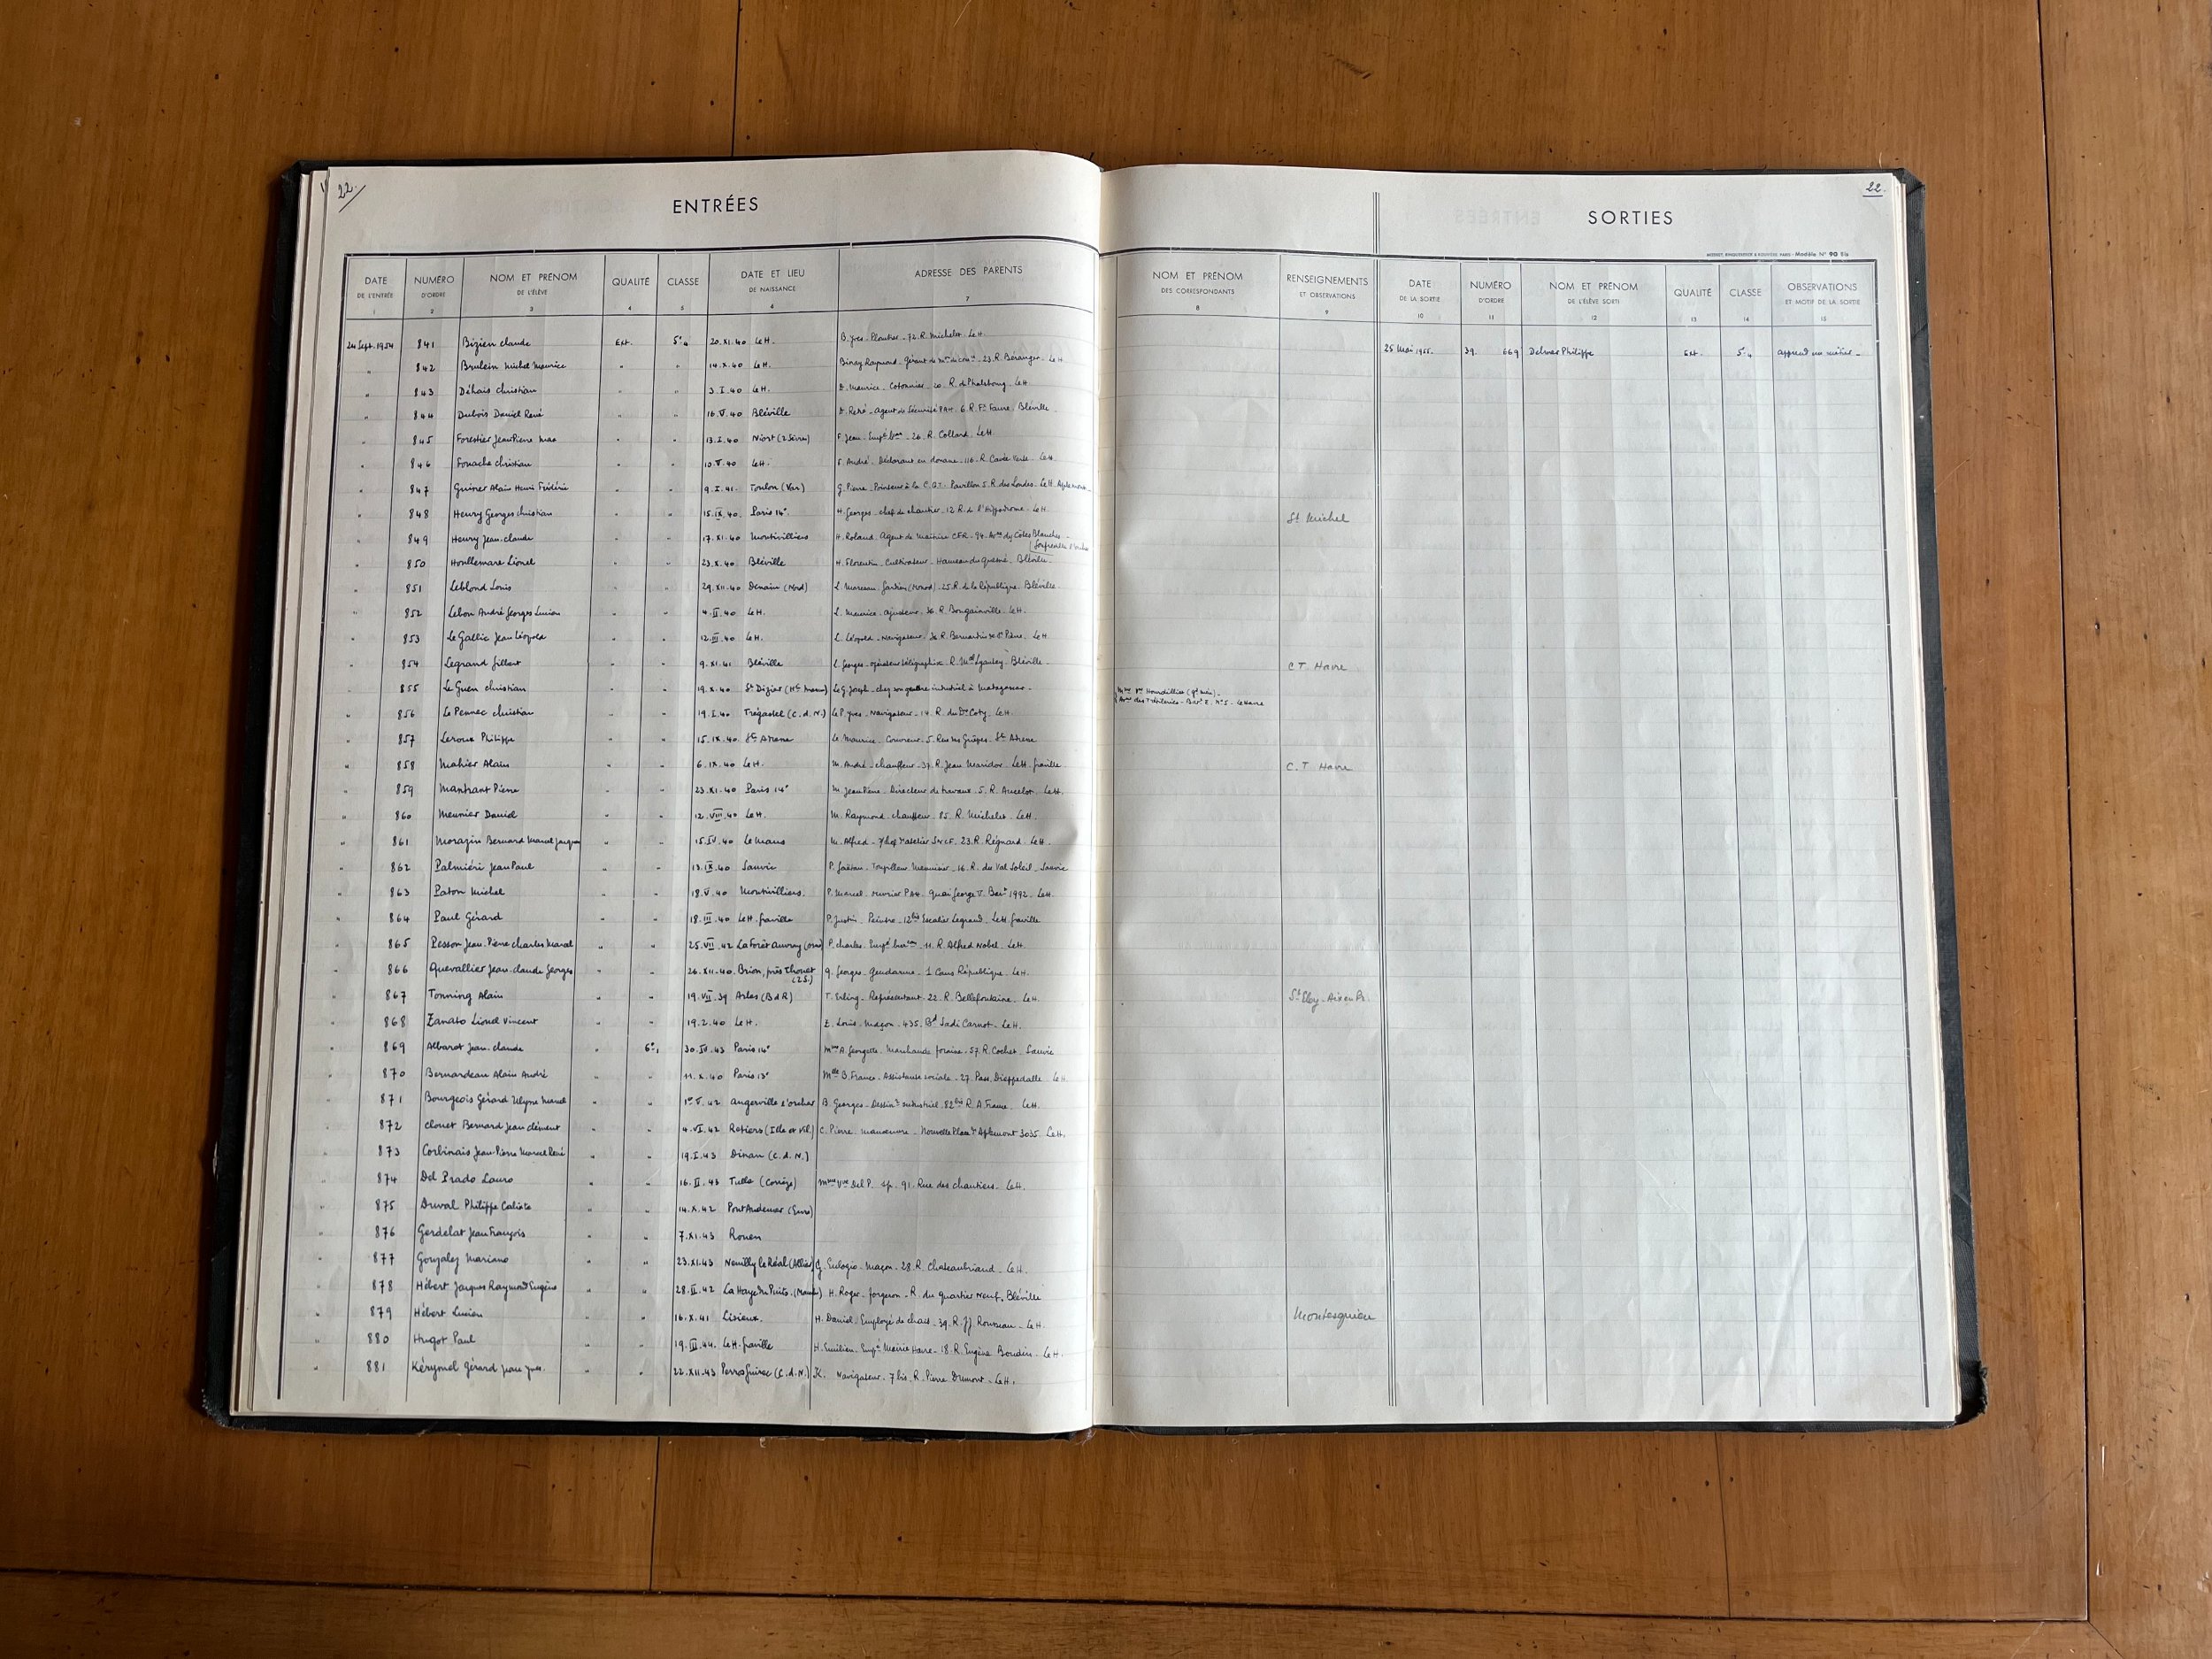 22.
ENTRÉES
DATE DE L'ENTRÉE 1
NUMÉRO D'ORDRE 2
NOM ET PRÉNOM DE L'ÉLÈVE 3
QUALITÉ 4
CLASSE 5
DATE ET LIEU DE NAISSANCE 6
ADRESSE DES PARENTS 7
24 Sept. 1954 841 Bizien Claude Ext. 5e4 20.XI.40 Le H. B. Yves - Plombier - 72. R. Michelet - Le H.
" 842 Michel Maurice " " 14.X.40 Le H. Raymond - Gérant de - 23. R. Béranger - Le H
" 843 Déhais Christian " " 3.I.40 Le H. D. Maurice - Cotonnier - 20. R. de Phalsbourg - Le H
" 844 Dubois Daniel René " " 16.V.40 Bléville D. René - Agent de Sécurité PAH. 6. R. Fx Faure. Bléville
" 845 Forestier Jean Pierre Max " " 13.I.40 Niort (2 Sèvres) F. Jean - 26. R. Collard. Le H.
" 846 Fouache Christian " " 10.V.40 Le H. F. André - Déclarant en douane - 116. R. Cavée Verte - Le H
" 847 Alain Henri Frédéric " " 9.I.41. Toulon (Var) G. Pierre - Pointeur à la C.G.T. Pavillon 5. R. des Londes. Le H.
" 848 Henry Georges Christian " " 15.IX.40. Paris 14e H. Georges - chef de chantier - 12 R. de l'Hippodrome - Le H.
" 849 Henry Jean-Claude " " 17.XI.40 Montivilliers H. Roland. Agent de Maîtrise CFR - 94. des Côtes Blanches -
" 850 Houllemare Lionel " " 23.X.40 Bléville H. Florentin - Cultivateur - Hameau du Quesne. Bléville.
" 851 Leblond Louis " " 29.XII.40 Denain (Nord) 25 R. de la République. Bléville
" 852 Lebon André Georges Lucien " " 4.II.40 Le H. L. Maurice - ajusteur. 36. R. Bougainville. Le H.
" 853 Le Gallic Jean Léopold " " 12.III.40 Le H. L. Léopold - Navigateur - R. Bernardin de St Pierre. Le H
" 854 Legrand Gilbert " " 9.XI.41 Bléville L. Georges - opérateur Bléville -
" 855 Le Guen Christian " " 19.X.40 St Dizier (Hte Marne) Le G. Joseph - industriel à Madagascar -
" 856 Le Pennec Christian " " 19.I.40 Trégastel (C.d.N.) Le P. Yves - Navigateur - 14. R. du Dr Coty. Le H.
" 857 Leroux Philippe " " 15.IX.40. Ste Adresse Le Maurice - Couvreur - 5. Rue St Adresse
" 858 Mahier Alain " " 6.IX.40 Le H. M. André - chauffeur - 37. R. Jean Maridor. Le H. Graville
" 859 Pierre " " 23.XI.40 Paris 14e M. Jean Pierre - Directeur de travaux. 5. R. Ancelot. Le H.
" 860 Meunier Daniel " " 12.VIII.40 Le H. M. Raymond. chauffeur. 85. R. Michelet - Le H.
" 861 Morazin Bernard Marcel Jacques " " 15.IV.40 Le Mans M. Alfred - SNCF. 23. R. Régnard - Le H -
" 862 Palmiéri Jean Paul " " 13.IX.40 Sanvic P. Gaëtan - Menuisier - 16. R. du Val Soleil - Sanvic
" 863 Paton Michel " " 18.V.40 Montivilliers. P. Marcel - ouvrier PAH. Quai George V. Bart 1992 - Le H.
" 864 Paul Gérard " " 18.III.40 Le H. Graville P. Justin - Peintre - 12bis Escalier Legrand. Le H Graville
" 865 Pesson Jean-Pierre Charles Marcel " " 25.VII.42 La Forêt Auvray (Orne) P. Charles - 11. R. Alfred Nobel - Le H.
" 866 Quevallier Jean-Claude Georges " " 26.XII.40. Brion, près Thouet (2S.) Q. Georges - Gendarme - 1 Cours République - Le H.
" 867 Tonning Alain " " 19.VII.39 Arles (B d R) T. Erling - Représentant - 22. R. Bellefontaine. Le H.
" 868 Zanato Lionel Vincent " " 19.2.40 Le H. Z. Louis - Maçon - 435. Bd Sadi Carnot - Le H.
" 869 Albarot Jean-Claude " 6e1 30.IV.43 Paris 14e Mme A. Georgette - Marchande foraine - 57 R. Cochet - Sanvic
" 870 Bernardeau Alain André " " 11.X.40 Paris 13e B. France - Assistante sociale - 27. Pass. Dieppedalle. Le H.
" 871 Bourgeois Gérard Ulysse Marcel " " 1er V. 42 Angerville l'Orcher B. Georges - industriel. 82bis R. A. France. Le H.
" 872 Clouet Bernard Jean Clément " " 4.VI.42 Retiers (Ille et Vil.) C. Pierre - Manœuvre - Aplemont 3035 Le H.
" 873 Corbinais Jean-Pierre Marcel René " " 19.I.43 Dinan (C.d.N.)
" 874 Del Prado Lauro " " 16.II.43 Tulle (Corrèze) Mme Vve Del P. sp. 91. Rue des chantiers - Le H.
" 875 Duval Philippe Calixte " " 14.X.42 Pont Audemer (Eure)
" 876 Gerdelat Jean François " " 7.XI.43 Rouen
" 877 Gonzalez Mariano " " 23.XI.43 Neuilly le Réal (Allier) G. Eulogio - Maçon - 28. R. Chateaubriand - Le H.
" 878 Hébert Jacques Raymond Eugène " " 28.II.42 La Haye du Puits. (Manche) H. Roger - forgeron - R. du quartier Neuf. Bléville
" 879 Hébert Lucien " " 16.X.41 Lisieux. H. Daniel - Employé de - 39. R. J.J. Rousseau - Le H.
" 880 Hugot Paul " " 19.III.44. Le H. Graville H. Emilien - Empé Mairie Havre - 18. R. Eugène Boudin. Le H.
" 881 Kérymel Gérard Jean Yves. " " 22.XII.43 Perros Guirec (C.d.N.) K. Navigateur. 7 bis. R. Pierre Dumont - Le H.
22
SORTIES
Modèle N° 90 Bis
NOM ET PRÉNOM DES CORRESPONDANTS 8
RENSEIGNEMENTS ET OBSERVATIONS 9
DATE DE LA SORTIE 10
NUMÉRO D'ORDRE 11
NOM ET PRÉNOM DE L'ÉLÈVE SORTI 12
QUALITÉ 13
CLASSE 14
OBSERVATIONS ET MOTIF DE LA SORTIE 15
25 Mai 1955. 39. 669 Delmer Philippe Ext. 5e4 apprend un métier -
St Michel
C T Havre
Mme Vve
des Tréfileries - Bart E. N° 5 - Le Havre
C. T Havre
St Eloy - Aix en Pr.
Montesquieu